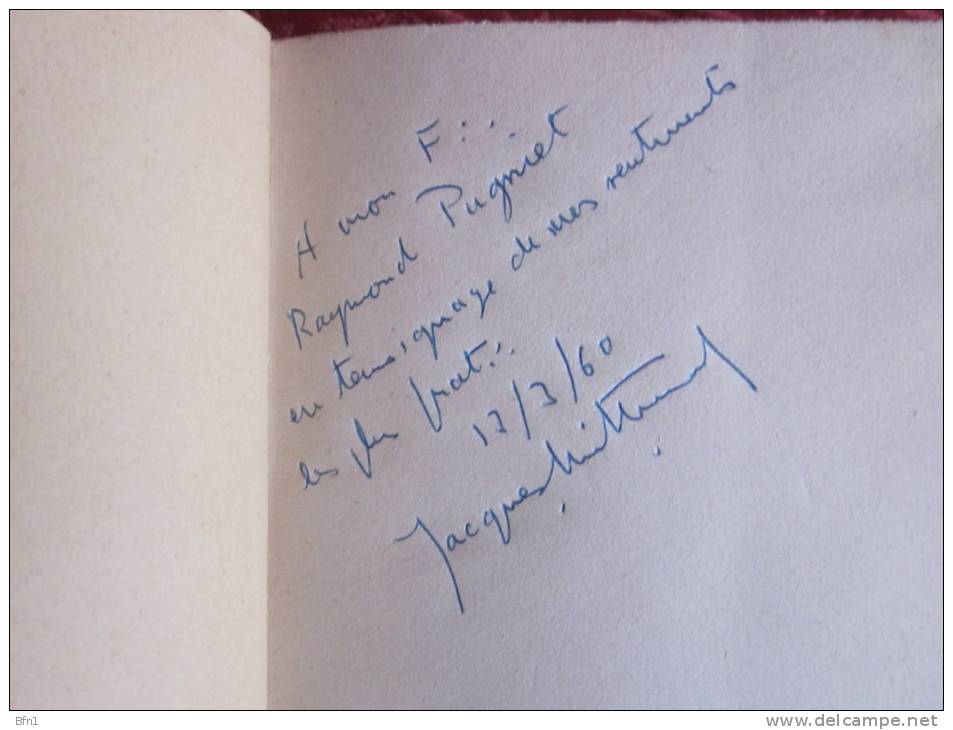 A mon F∴
Raymond Pugniet
en temoignage de mes sentiments
les plus frat∴
13/3/60
Jacques Mitterrand
Bfn1
www.delcampe.net